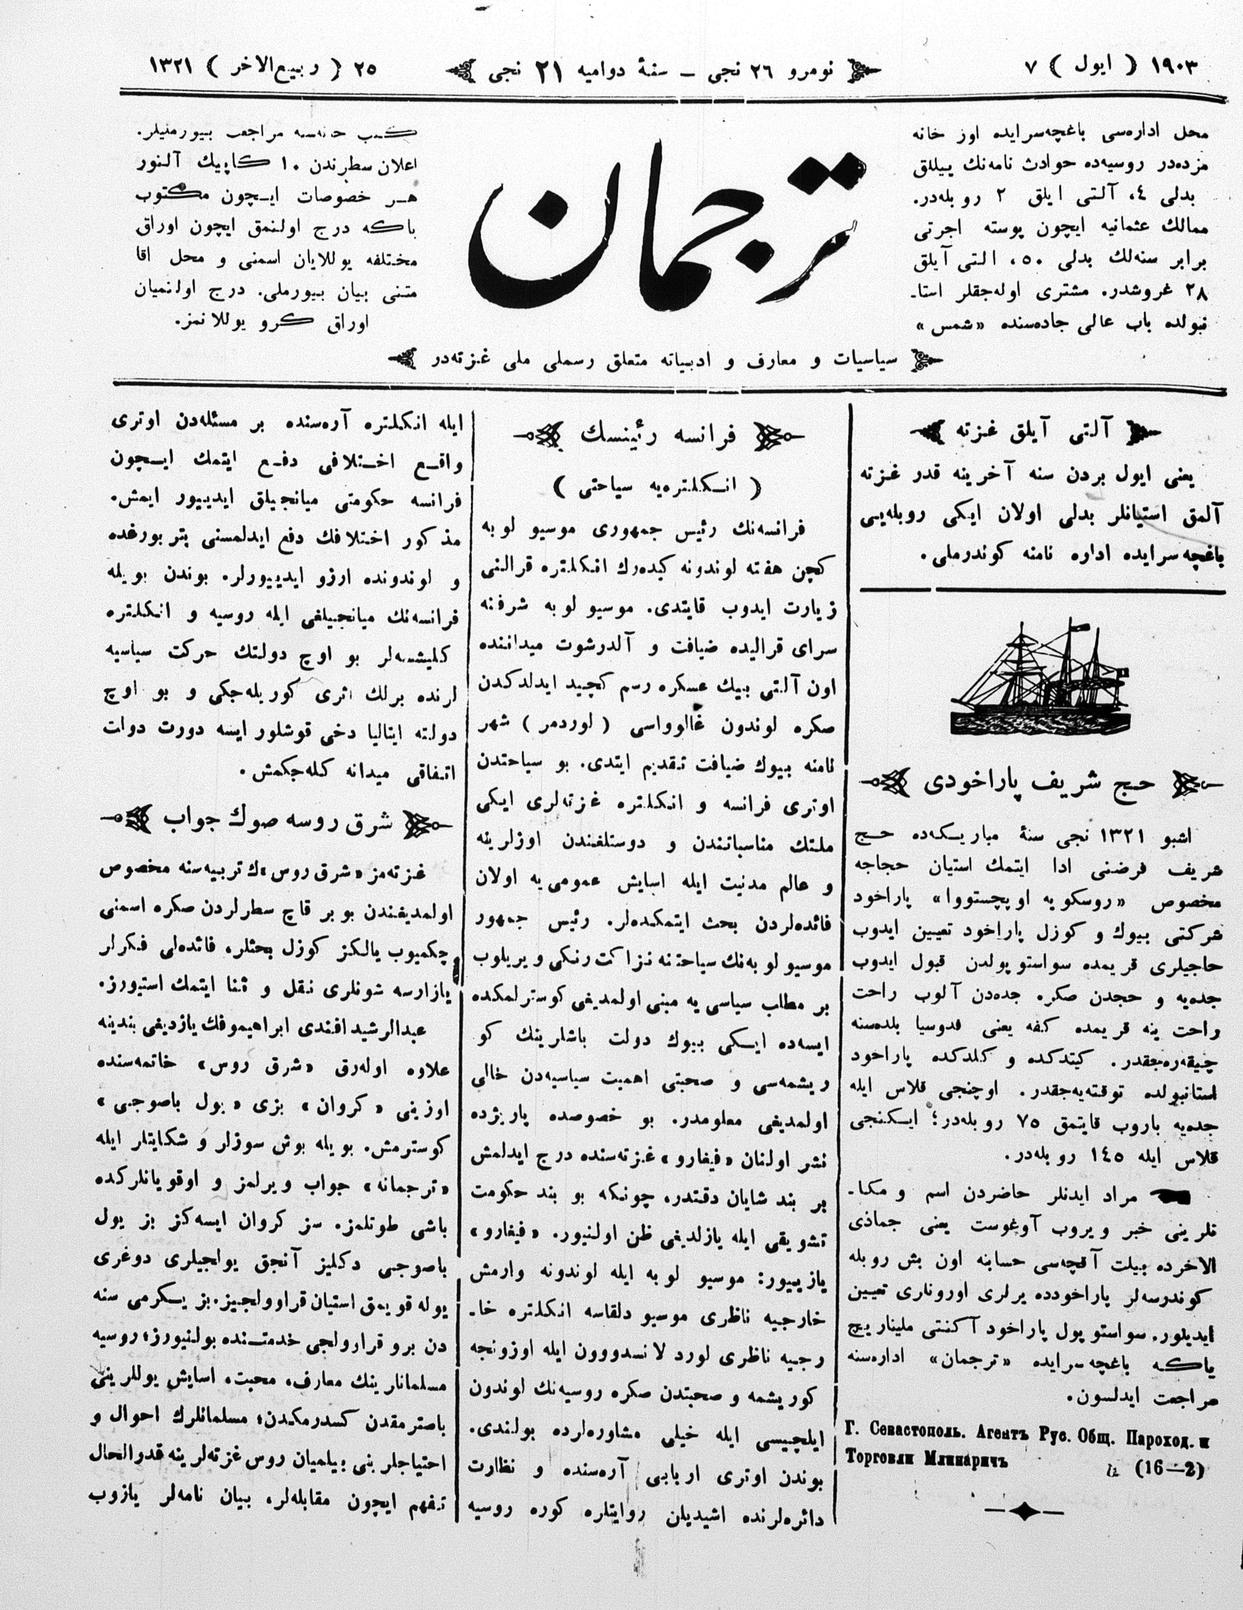 ١٩٠٣ ( ايول ) ٧
نومرو ٢٦ نجى – سنهٔ دواميه ٢١ نجى
٢٥ ( ربيع الاخر ) ١٣٢١
محل اداره‌سى باغچه‌سرايده اوز خانه
مزده‌در روسيه‌ده حوادث نامه‌نك ييللق
بدلى ٤، آلتى ايلق ٢ روبله‌در.
ممالك عثمانيه ايچون پوسته اجرتى
برابر سنه‌لك بدلى ٥٠، التى آيلق
٢٨ غروشدر. مشترى اوله‌جقلر استا-
نبولده باب عالى جاده‌سنده «شمس»
ترجمان
كتب خانه‌سه مراجعت بيورمليلر.
اعلان سطرندن ١٠ كاپيك آلنور
هر خصوصات ايچون مكتوب
باكه درج اولنمق ايچون اوراق
مختلفه يوللايان اسمنى و محل اقا
متنى بيان بيورملى. درج اولنميان
اوراق كرو يوللانمز.
سياسيات و معارف و ادبياته متعلق رسملى ملى غزته‌در
آلتى آيلق غزته
يعنى ايول بردن سنه آخرينه قدر غزته
آلمق استيانلر بدلى اولان ايكى روبله‌يى
باغچه‌سرايده اداره نامنه كوندرملى.
حج شريف پاراخودى
اشبو ١٣٢١ نجى سنهٔ مباريكه‌ده حج
شريف فرضنى ادا ايتمك استيان حجاجه
مخصوص «روسكويه اوپچستووا» پاراخود
شركتى بيوك و كوزل پاراخود تعيين ايدوب
حاجيلرى قريمده سواستوپولدن قبول ايدوب
جده‌يه و حجدن صكره جده‌دن آلوب راحت
راحت ينه قريمده كفه يعنى فدوسيا بلده‌سنه
چيقه‌ره‌جقدر. كيتدكده و كلدكده پاراخود
استانبولده توقته‌يه‌جقدر. اوچنجى قلاس ايله
جده‌يه باروب قايتمق ٧٥ روبله‌در؛ ايكنجى
قلاس ايله ١٤٥ روبله‌در.
مراد ايدنلر حاضردن اسم و مكا-
نلرينى خبر ويروب آوغوست يعنى جماذى
الاخرده بيلت آقچه‌سى حسابه اون بش روبله
كوندرسه‌لر پاراخودده يرلرى اورونارى تعيين
ايديلور. سواستوپول پاراخود آكنتى ملينارييچ
ياكه باغچه‌سرايده «ترجمان» اداره‌سنه
مراجعت ايدلسون.
Г. Севастополь. Агентъ Рус. Общ. Пароход. и
Торговли Млинаричъ (16—2)
فرانسه رئينسك
( انكلتره‌يه سياحتى )
فرانسه‌نك رئيس جمهورى موسيو لوبه
كچن هفته لوندونه كيده‌رك انكلتره قرالنى
زيارت ايدوب قايتدى. موسيو لوبه شرفنه
سراى قراليده ضيافت و آلدرشوت ميداننده
اون آلتى بيك عسكره رسم كچيد ايدلدكدن
صكره لوندون غالوواسى ( لوردمر ) شهر
نامنه بيوك ضيافت تقديم ايتدى. بو سياحتدن
اوترى فرانسه و انكلتره غزته‌لرى ايكى
ملتك مناسباتندن و دوستلغندن اوزلرينه
و عالم مدنيت ايله اسايش عموميه اولان
فائده‌لردن بحث ايتمكده‌لر. رئيس جمهور
موسيو لوبه‌نك سياحتنه نزاكت رنكى ويريلوب
بر مطلب سياسى يه مبنى اولمديغى كوسترلمكده
ايسه‌ده ايكى بيوك دولت باشلرينك كو
ريشمه‌سى و صحبتى اهميت سياسيه‌دن خالى
اولمديغى معلومدر. بو خصوصده پاريزده
نشر اولنان «فيغارو» غزته‌سنده درج ايدلمش
بر بند شايان دقتدر، چونكه بو بند حكومت
تشويقى ايله يازلديغى ظن اولنيور. «فيغارو»
يازييور: موسيو لوبه ايله لوندونه وارمش
خارجيه ناظرى موسيو دلقاسه انكلتره خا-
رجيه ناظرى لورد لانسدوون ايله اوزونجه
كوريشمه و صحبتدن صكره روسيه‌نك لوندون
ايلچيسى ايله خيلى مشاوره‌لرده بولندى.
بوندن اوترى اربابى آره‌سنده و نظارت
دائره‌لرنده اشيديلن روايتلره كوره روسيه
ايله انكلتره آره‌سنده بر مسئله‌دن اوترى
واقع اختلافى دفع ايتمك ايچون
فرانسه حكومتى ميانجيلق ايدييور ايمش.
مذكور اختلافك دفع ايدلمسنى پتربورغده
و لوندونده ارزو ايدييورلر. بوندن بويله
فرانسه‌نك ميانجيلغى ايله روسيه و انكلتره
كليشسه‌لر بو اوچ دولتك حركت سياسيه
لرنده برلك اثرى كوريله‌جكى و بو اوچ
دولته ايتاليا دخى قوشلور ايسه دورت دوات
اتفاقى ميدانه كله‌جكمش.
شرق روسه صوك جواب
غزته‌مز «شرق روس»ك تربيه‌سنه مخصوص
اولمديغندن بو بر قاچ سطرلردن صكره اسمنى
چكميوب يالكز كوزل بحثلر، فائده‌لى فكرلر
يازارسه شونلرى نقل و ثنا ايتمك استيورز.
عبدالرشيد افندى ابراهيموفك يازديغى بندينه
علاوه اوله‌رق «شرق روس» خاتمه‌سنده
اوزينى «كروان» بزى «يول باصوجى»
كوسترمش. بويله بوش سوزلر و شكايتلر ايله
«ترجمانه» جواب ويرلمز و اوقويانلركده
باشى طوتلمز. سز كروان ايسه‌كز بز يول
باصوجى دكليز آنجق يولجيلرى دوغرى
يوله قويمق استيان قراوولجيز. بز يكرمى سنه
دن برو قراوولجى خدمتنده بولنيورز؛ روسيه
مسلمانارينك معارف، محبت، اسايش يوللرينى
باصترمقدن كسدرمكدن؛ مسلمانلرك احوال و
احتياجلرينى بيلميان روس غزته‌لرينه قدوالحال
تفهم ايچون مقابله‌لر، بيان نامه‌لر يازوب